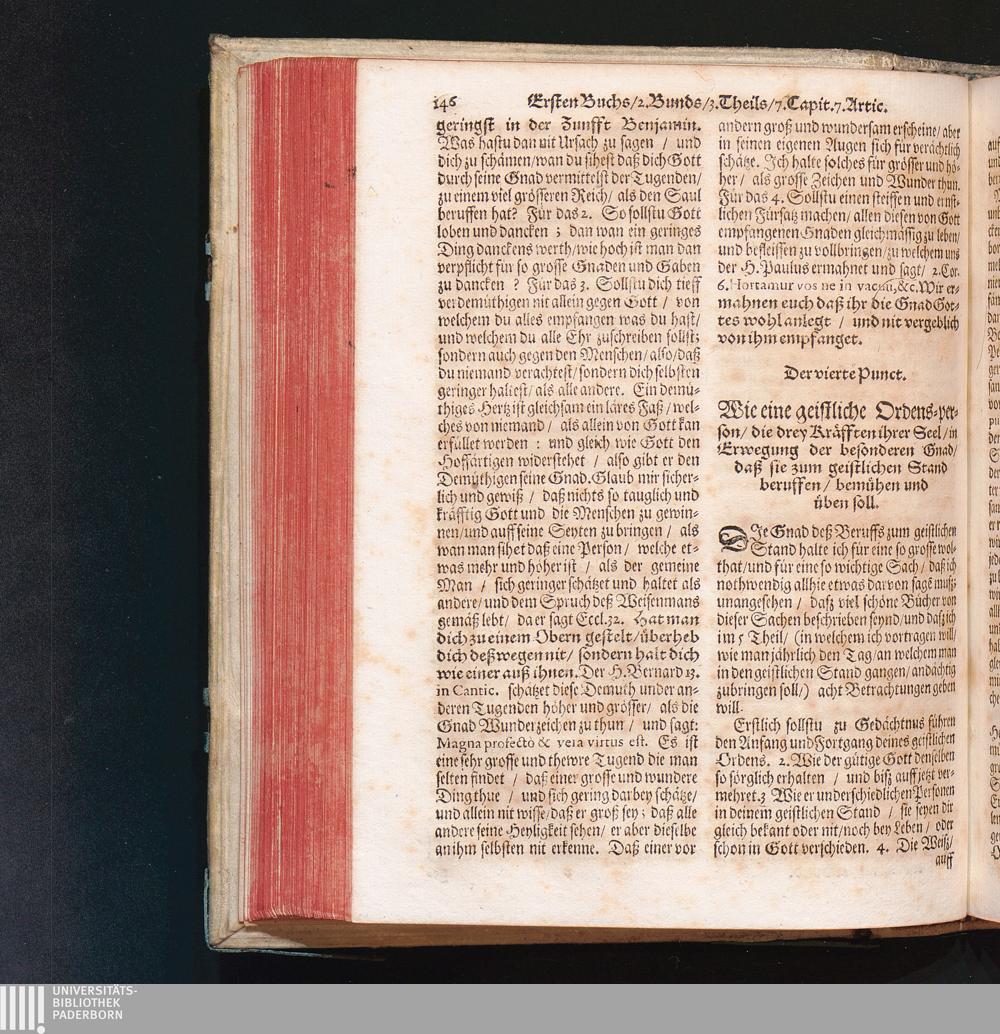 146 Ersten Buchs/2.Bunds/3.Theils/7.Capit.7.Artic.
geringst in der Zunfft Benjamin.
Was hastu dan nit Ursach zu sagen / und
dich zu schämen/wan du sihest daß dich Gott
durch seine Gnad vermittelst der Tugenden/
zu einem viel grösseren Reich/ als den Saul
beruffen hat? Für das 2. So sollstu Gott
loben und dancken ; dan wan ein geringes
Ding danckens werth/wie hoch ist man dan
verpflicht für so grosse Gnaden und Gaben
zu dancken ? Für das 3. Sollstu dich tieff
verdemüthigen nit allein gegen Gott / von
welchem du alles empfangen was du hast/
und welchem du alle Ehr zuschreiben sollst;
sondern auch gegen den Menschen/also/daß
du niemand verachtest/sondern dich selbsten
geringer haltest/als alle andere. Ein demü-
thiges Hertz ist gleichsam ein läres Faß/wel-
ches von niemand / als allein von Gott kan
erfüllet werden : und gleich wie Gott den
Hoffärtigen widerstehet / also gibt er den
Demüthigen seine Gnad. Glaub mir sicher-
lich und gewiß / daß nichts so tauglich und
kräfftig Gott und die Menschen zu gewin-
nen/und auff seine Seyten zu bringen / als
wan man sihet daß eine Person / welche et-
was mehr und höher ist / als der gemeine
Man / sich geringer schätzet und haltet als
andere/und dem Spruch deß Weisenmans
gemäß lebt/ da er sagt Eccl.32. Hat man
dich zu einem Obern gestelt/überheb
dich deßwegen nit/ sondern halt dich
wie einer auß ihnen. Der H.Bernard 13.
in Cantic. schätzet diese Demuth under an-
deren Tugenden höher und grösser/ als die
Gnad Wunderzeichen zu thun / und sagt:
Magna profectò & vera virtus est. Es ist
eine sehr grosse und thewre Tugend die man
selten findet / daß einer grosse und wundere
Ding thue / und sich gering darbey schätze/
und allein nit wisse/daß er groß sey; daß alle
andere seine Heyligkeit sehen/ er aber dieselbe
an ihm selbsten nit erkenne. Daß einer vor
andern groß und wundersam erscheine/ aber
in seinen eigenen Augen sich für verächtlich
schätze. Ich halte solches für grösser und hö-
her/ als grosse Zeichen und Wunder thun.
Für das 4. Sollstu einen steiffen und ernst-
lichen Fürsatz machen/ allen diesen von Gott
empfangenen Gnaden gleichmässig zu leben/
und befleissen zu vollbringen/ zu welchem uns
der H. Paulus ermahnet und sagt/ 2.Cor.
6. Hortamur vos ne in vacuũ,&c. Wir er-
mahnen euch daß ihr die Gnad Got-
tes wohl anlegt / und nit vergeblich
von ihm empfanget.
Der vierte Punct.
Wie eine geistliche Ordens-per-
son/ die drey Kräfften ihrer Seel/ in
Erwegung der besonderen Gnad/
daß sie zum geistlichen Stand
beruffen/ bemühen und
üben soll.
DJe Gnad deß Beruffs zum geistlichen
Stand halte ich für eine so grosse wol-
that/und für eine so wichtige Sach/ daß ich
nothwendig allhie etwas darvon sagẽ muß;
unangesehen / daß viel schöne Bücher von
dieser Sachen beschrieben seynd/und daß ich
im 5 Theil/ (in welchem ich vortragen will/
wie man jährlich den Tag/an welchem man
in den geistlichen Stand gangen/ andächtig
zubringen soll/) acht Betrachtungen geben
will.
Erstlich sollstu zu Gedächtnus führen
den Anfang und Fortgang deines geistlichen
Ordens. 2. Wie der gütige Gott denselben
so sörglich erhalten / und biß auff jetzt ver-
mehret.3 Wie er underschiedlichen Personen
in deinem geistlichen Stand / sie seyen dir
gleich bekant oder nit/noch bey Leben/ oder
schon in Gott verschieden. 4. Die Weiß/
auff
UNIVERSITÄTS-
BIBLIOTHEK
PADERBORN